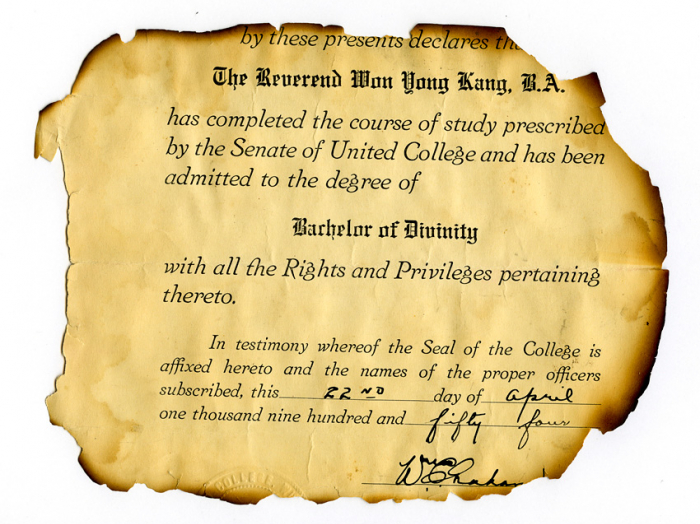 by these presents declares th
The Reverend Won Yong Kang, B.A.
has completed the course of study prescribed
by the Senate of United College and has been
admitted to the degree of
Bachelor of Divinity
with all the Rights and Privileges pertaining
thereto.
In testimony whereof the Seal of the College is
affixed hereto and the names of the proper officers
subscribed, this 22ND day of April
one thousand nine hundred and fifty four
COLLEGE